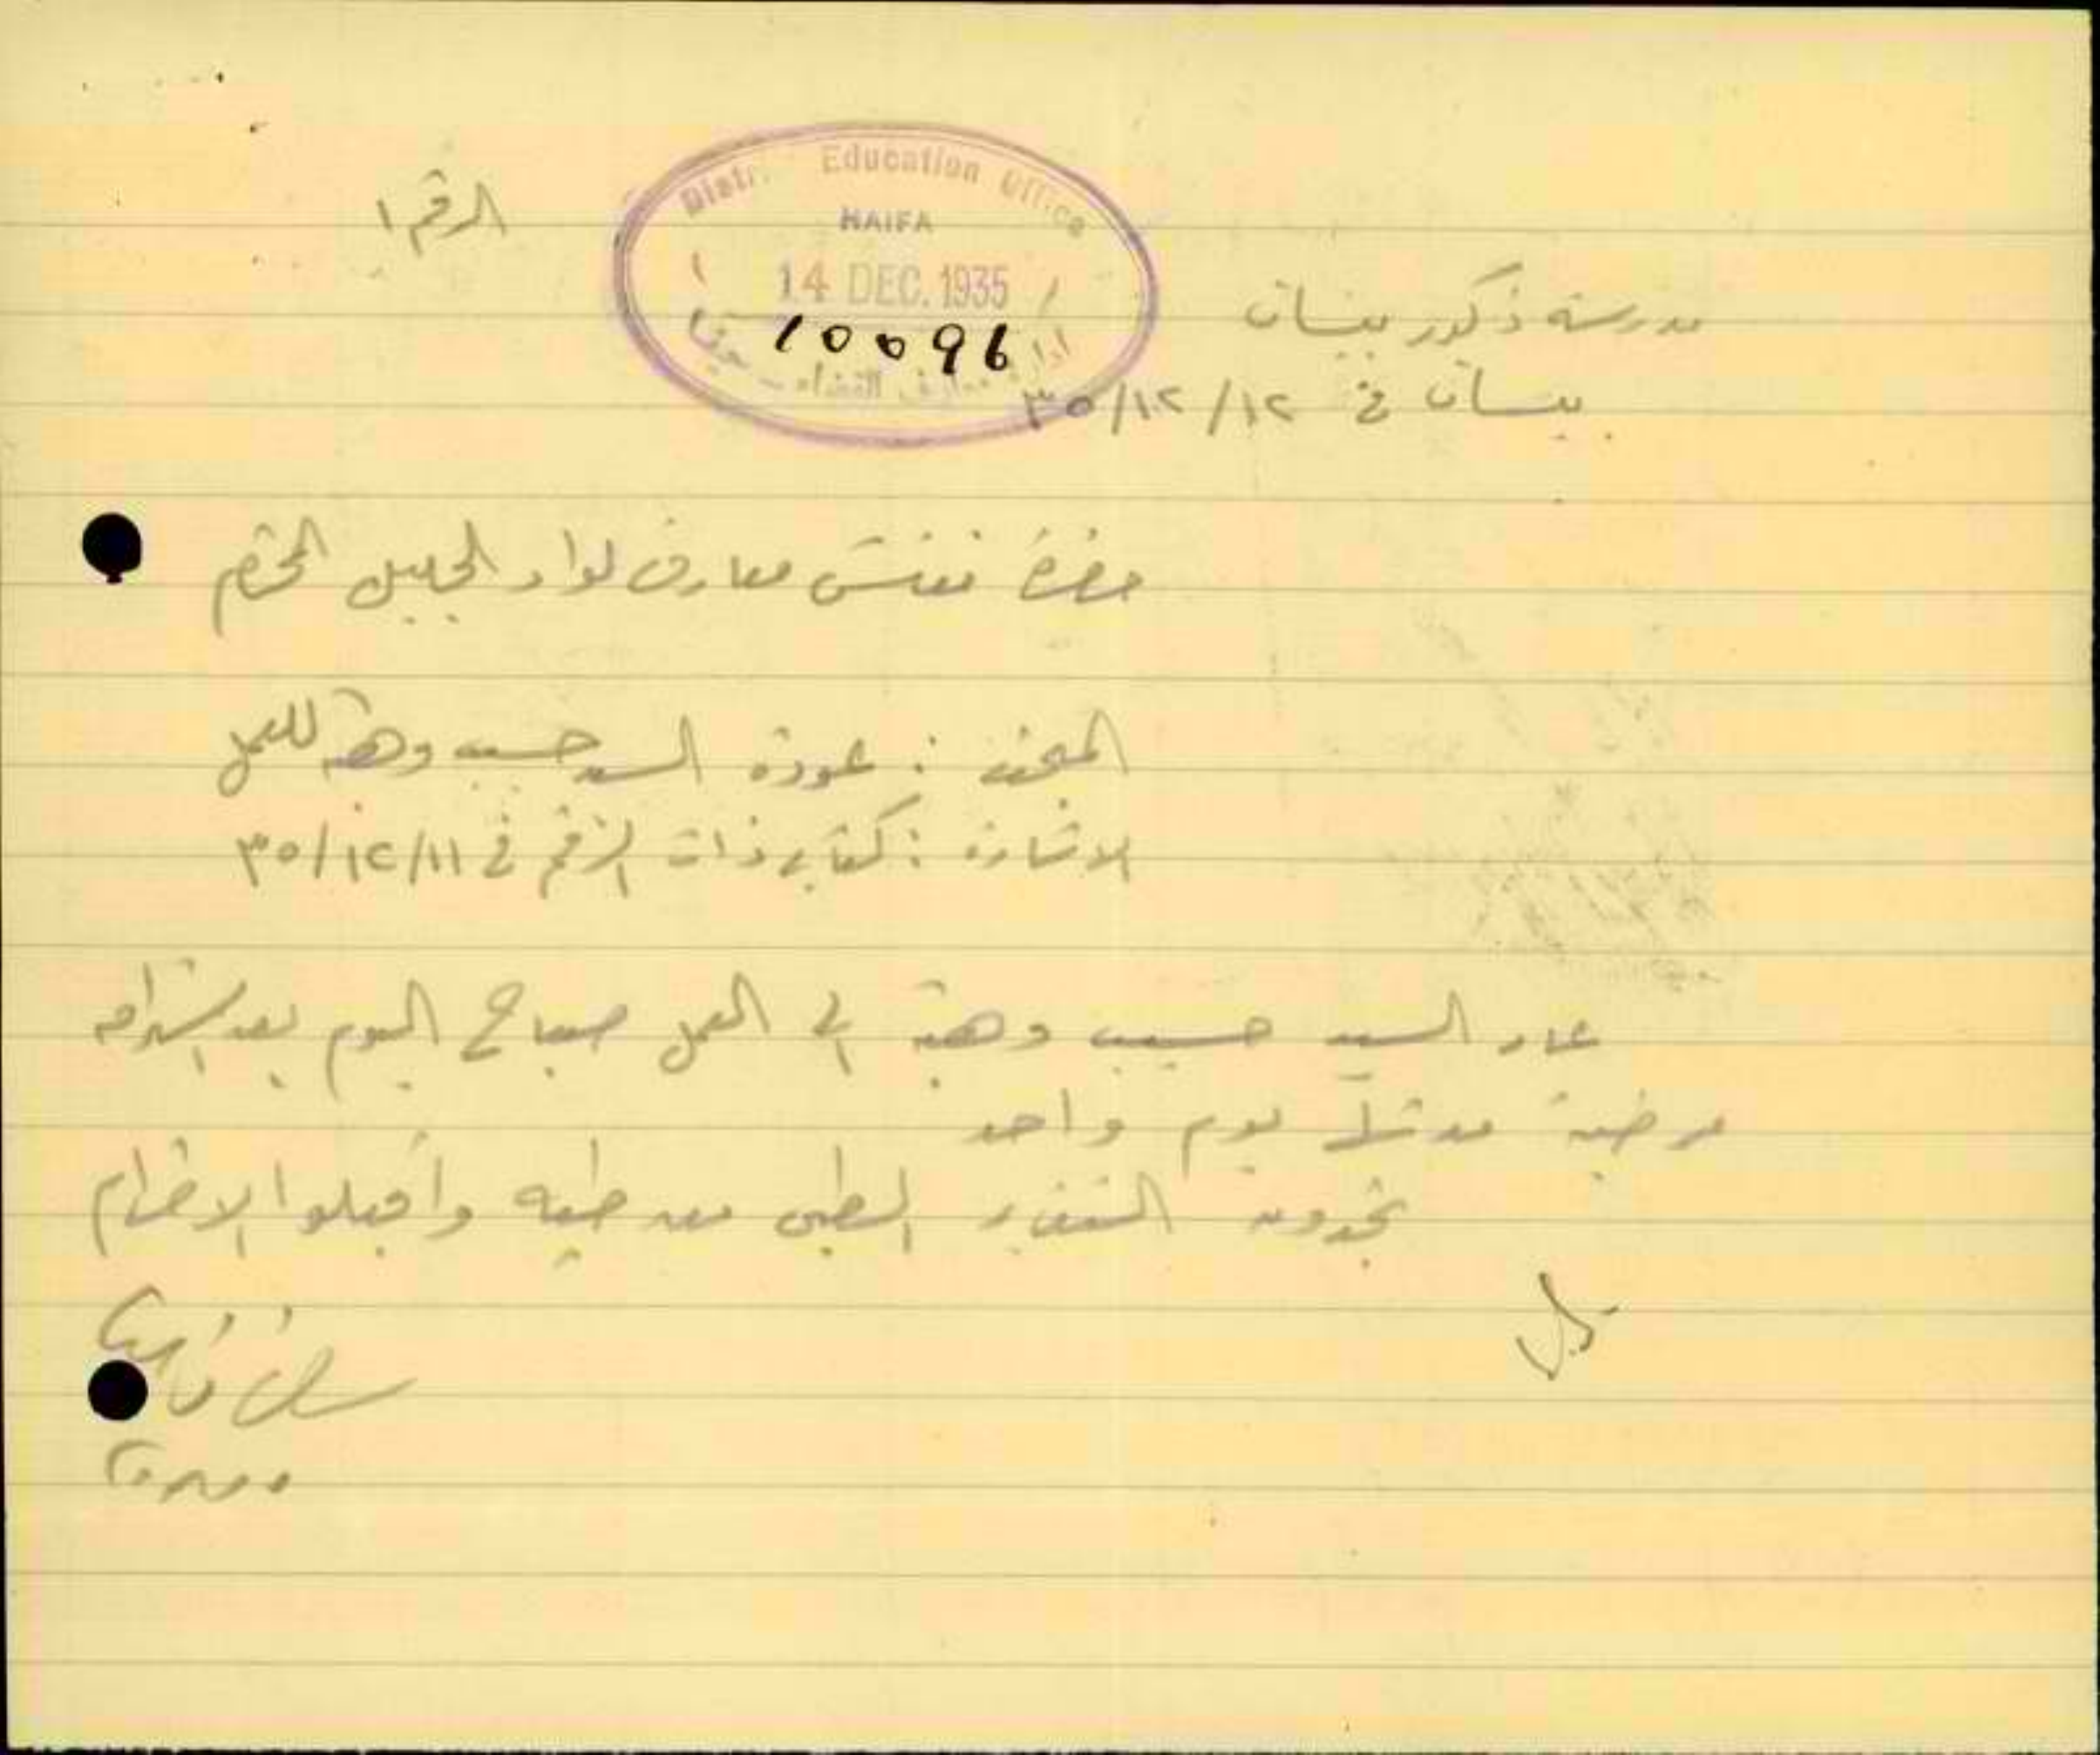 الرقم ١
Distr. Education Office
HAIFA
14 DEC. 1935
10096
ادارة معارف القضاء - حيفا
مدرسة ذكور بيسان
بيسان في ١٢/١٢/٣٥
حضرة مفتش معارف لواء الجليل المحترم
المبحث : عودة السيد حسيب وهبة للعمل
الاشارة : كتابي ذات الرقم في ١١/١٢/٣٥
عاد السيد حسيب وهبة الى العمل صباح اليوم بعد استراحة
مرضية مدتها يوم واحد
تجدون التقرير الطبي من طيه واقبلوا الاحترام